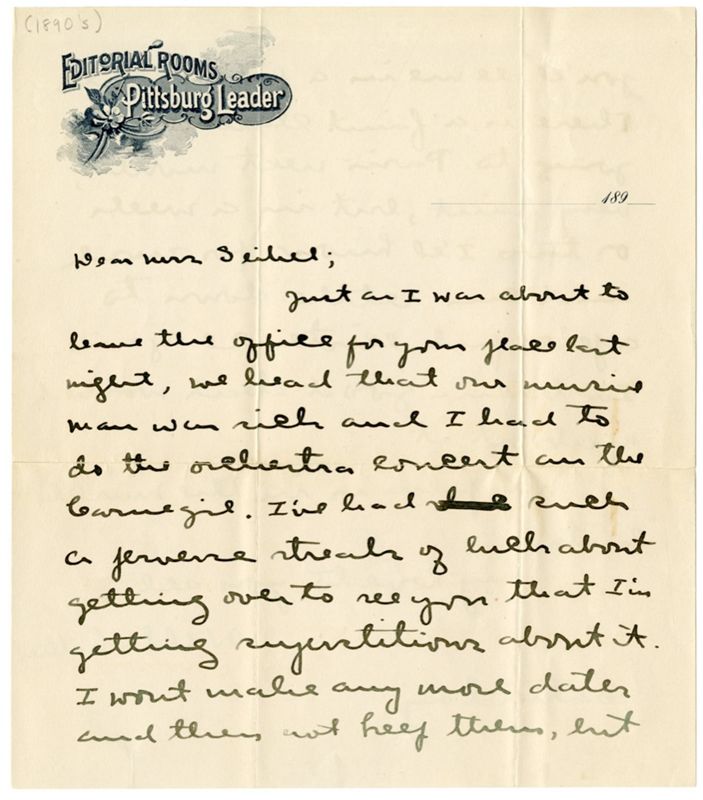 (1890's)
EDITORIAL ROOMS,
Pittsburg Leader
189
Dear Mrs Seibel;
Just as I was about to
leave the office for your place last
night, we head that our music
man was sick and I had to
do the orchestra concert an the
Carnegie. I've had such
a perverse streak of luck about
getting over to see you that I'm
getting superstitious about it.
I wont make any more dates
and then not keep them, but